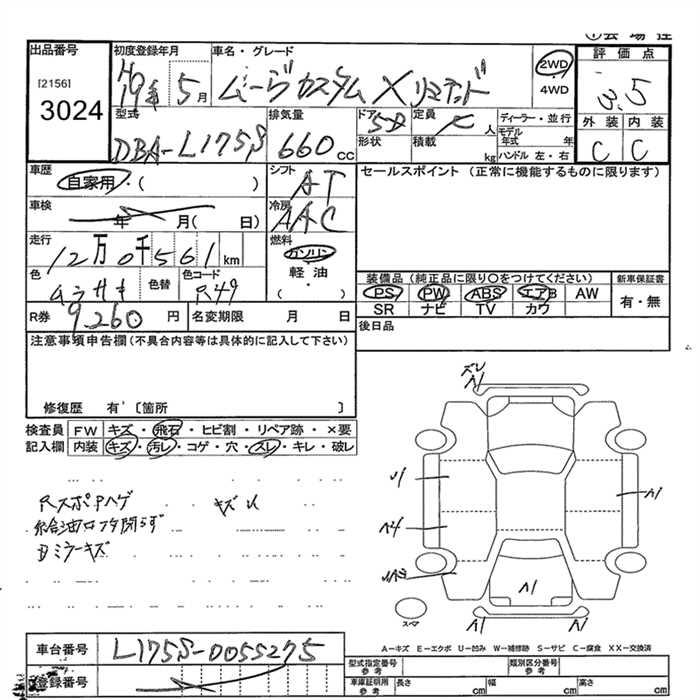 出品番号 初度登録年月 車名・グレード 2WD 評価点
[2156] H19年 5月 ムーヴカスタム Xリミテッド 4WD 3.5
3024
型式 排気量 ドア 5D 定員 人 ディーラー・並行 外装 内装
DBA-L175S 660cc 形状 積載 kg モデル年式 年 C C
ハンドル 左・右
車歴 シフト セールスポイント (正常に機能するものに限ります)
自家用・( ) AT
車検 年 月( 日) 冷房 AAC
走行 12万0千561km 燃料 ガソリン
色 ムラサキ 色替 色コード R49 軽油・( )
装備品 (純正品に限り〇をつけてください) 新車保証書
PS PW ABS エアB AW 有・無
SR ナビ TV カワ
R券 9,260円 名変期限 月 日 後日品
注意事項申告欄(不具合内容等は具体的に記入して下さい)
修復歴 有 [箇所 ]
検査員 FW キズ・飛石・ヒビ割・リペア跡・×要
記入欄 内装 キズ・汚レ・コゲ・穴・スレ・キレ・破レ
ズレ
A1
Rスポ Pハゲ キズU
給油口フタ開らず
Dミラーキズ
U1
A1
A4
A1
スペア
A1
A1
A－キズ E－エクボ U－凹み W－補修跡 S－サビ C－腐食 XX－交換済
車台番号 L175S-0055275
登録番号
型式指定番号 参考 類別区分番号 参考
車庫証明用 参考 長さ cm 幅 cm 高さ cm